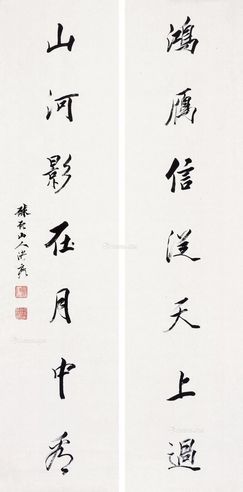 鴻雁信從天上過
山河影在月中看